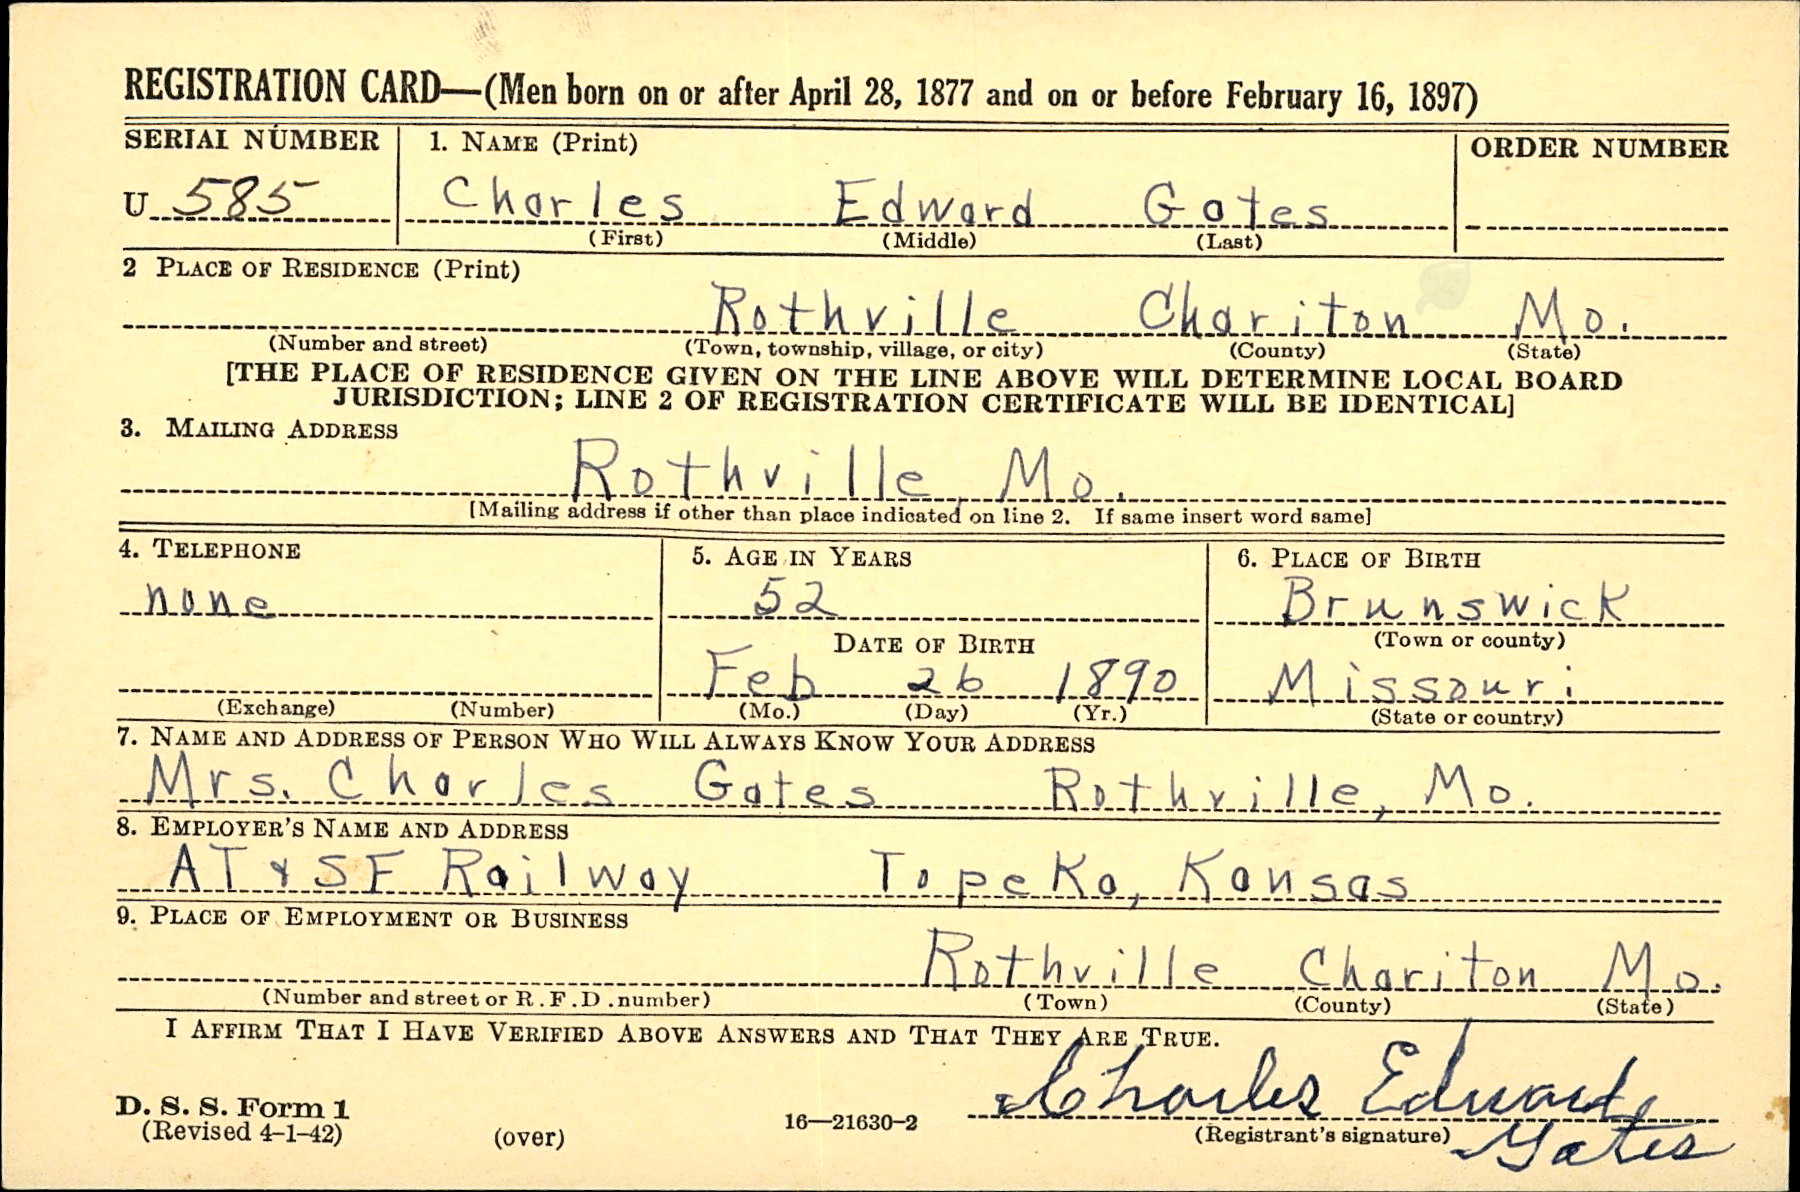 REGISTRATION CARD—(Men born on or after April 28, 1877 and on or before February 16, 1897)
SERIAL NUMBER 1. NAME (Print) ORDER NUMBER
U 585 Charles Edward Gates
(First) (Middle) (Last)
2 PLACE OF RESIDENCE (Print)
Rothville Chariton Mo.
(Number and street) (Town, township, village, or city) (County) (State)
[THE PLACE OF RESIDENCE GIVEN ON THE LINE ABOVE WILL DETERMINE LOCAL BOARD
JURISDICTION; LINE 2 OF REGISTRATION CERTIFICATE WILL BE IDENTICAL]
3. MAILING ADDRESS
Rothville, Mo.
[Mailing address if other than place indicated on line 2. If same insert word same]
4. TELEPHONE 5. AGE IN YEARS 6. PLACE OF BIRTH
none 52 Brunswick
DATE OF BIRTH (Town or county)
Feb 26 1890 Missouri
(Exchange) (Number) (Mo.) (Day) (Yr.) (State or country)
7. NAME AND ADDRESS OF PERSON WHO WILL ALWAYS KNOW YOUR ADDRESS
Mrs. Charles Gates Rothville, Mo.
8. EMPLOYER'S NAME AND ADDRESS
AT & SF Railway Topeka, Kansas
9. PLACE OF EMPLOYMENT OR BUSINESS
Rothville Chariton Mo.
(Number and street or R.F.D. number) (Town) (County) (State)
I AFFIRM THAT I HAVE VERIFIED ABOVE ANSWERS AND THAT THEY ARE TRUE.
Charles Edward
D. S. S. Form 1
(Revised 4-1-42) (over) 16—21630-2 (Registrant's signature) Gates